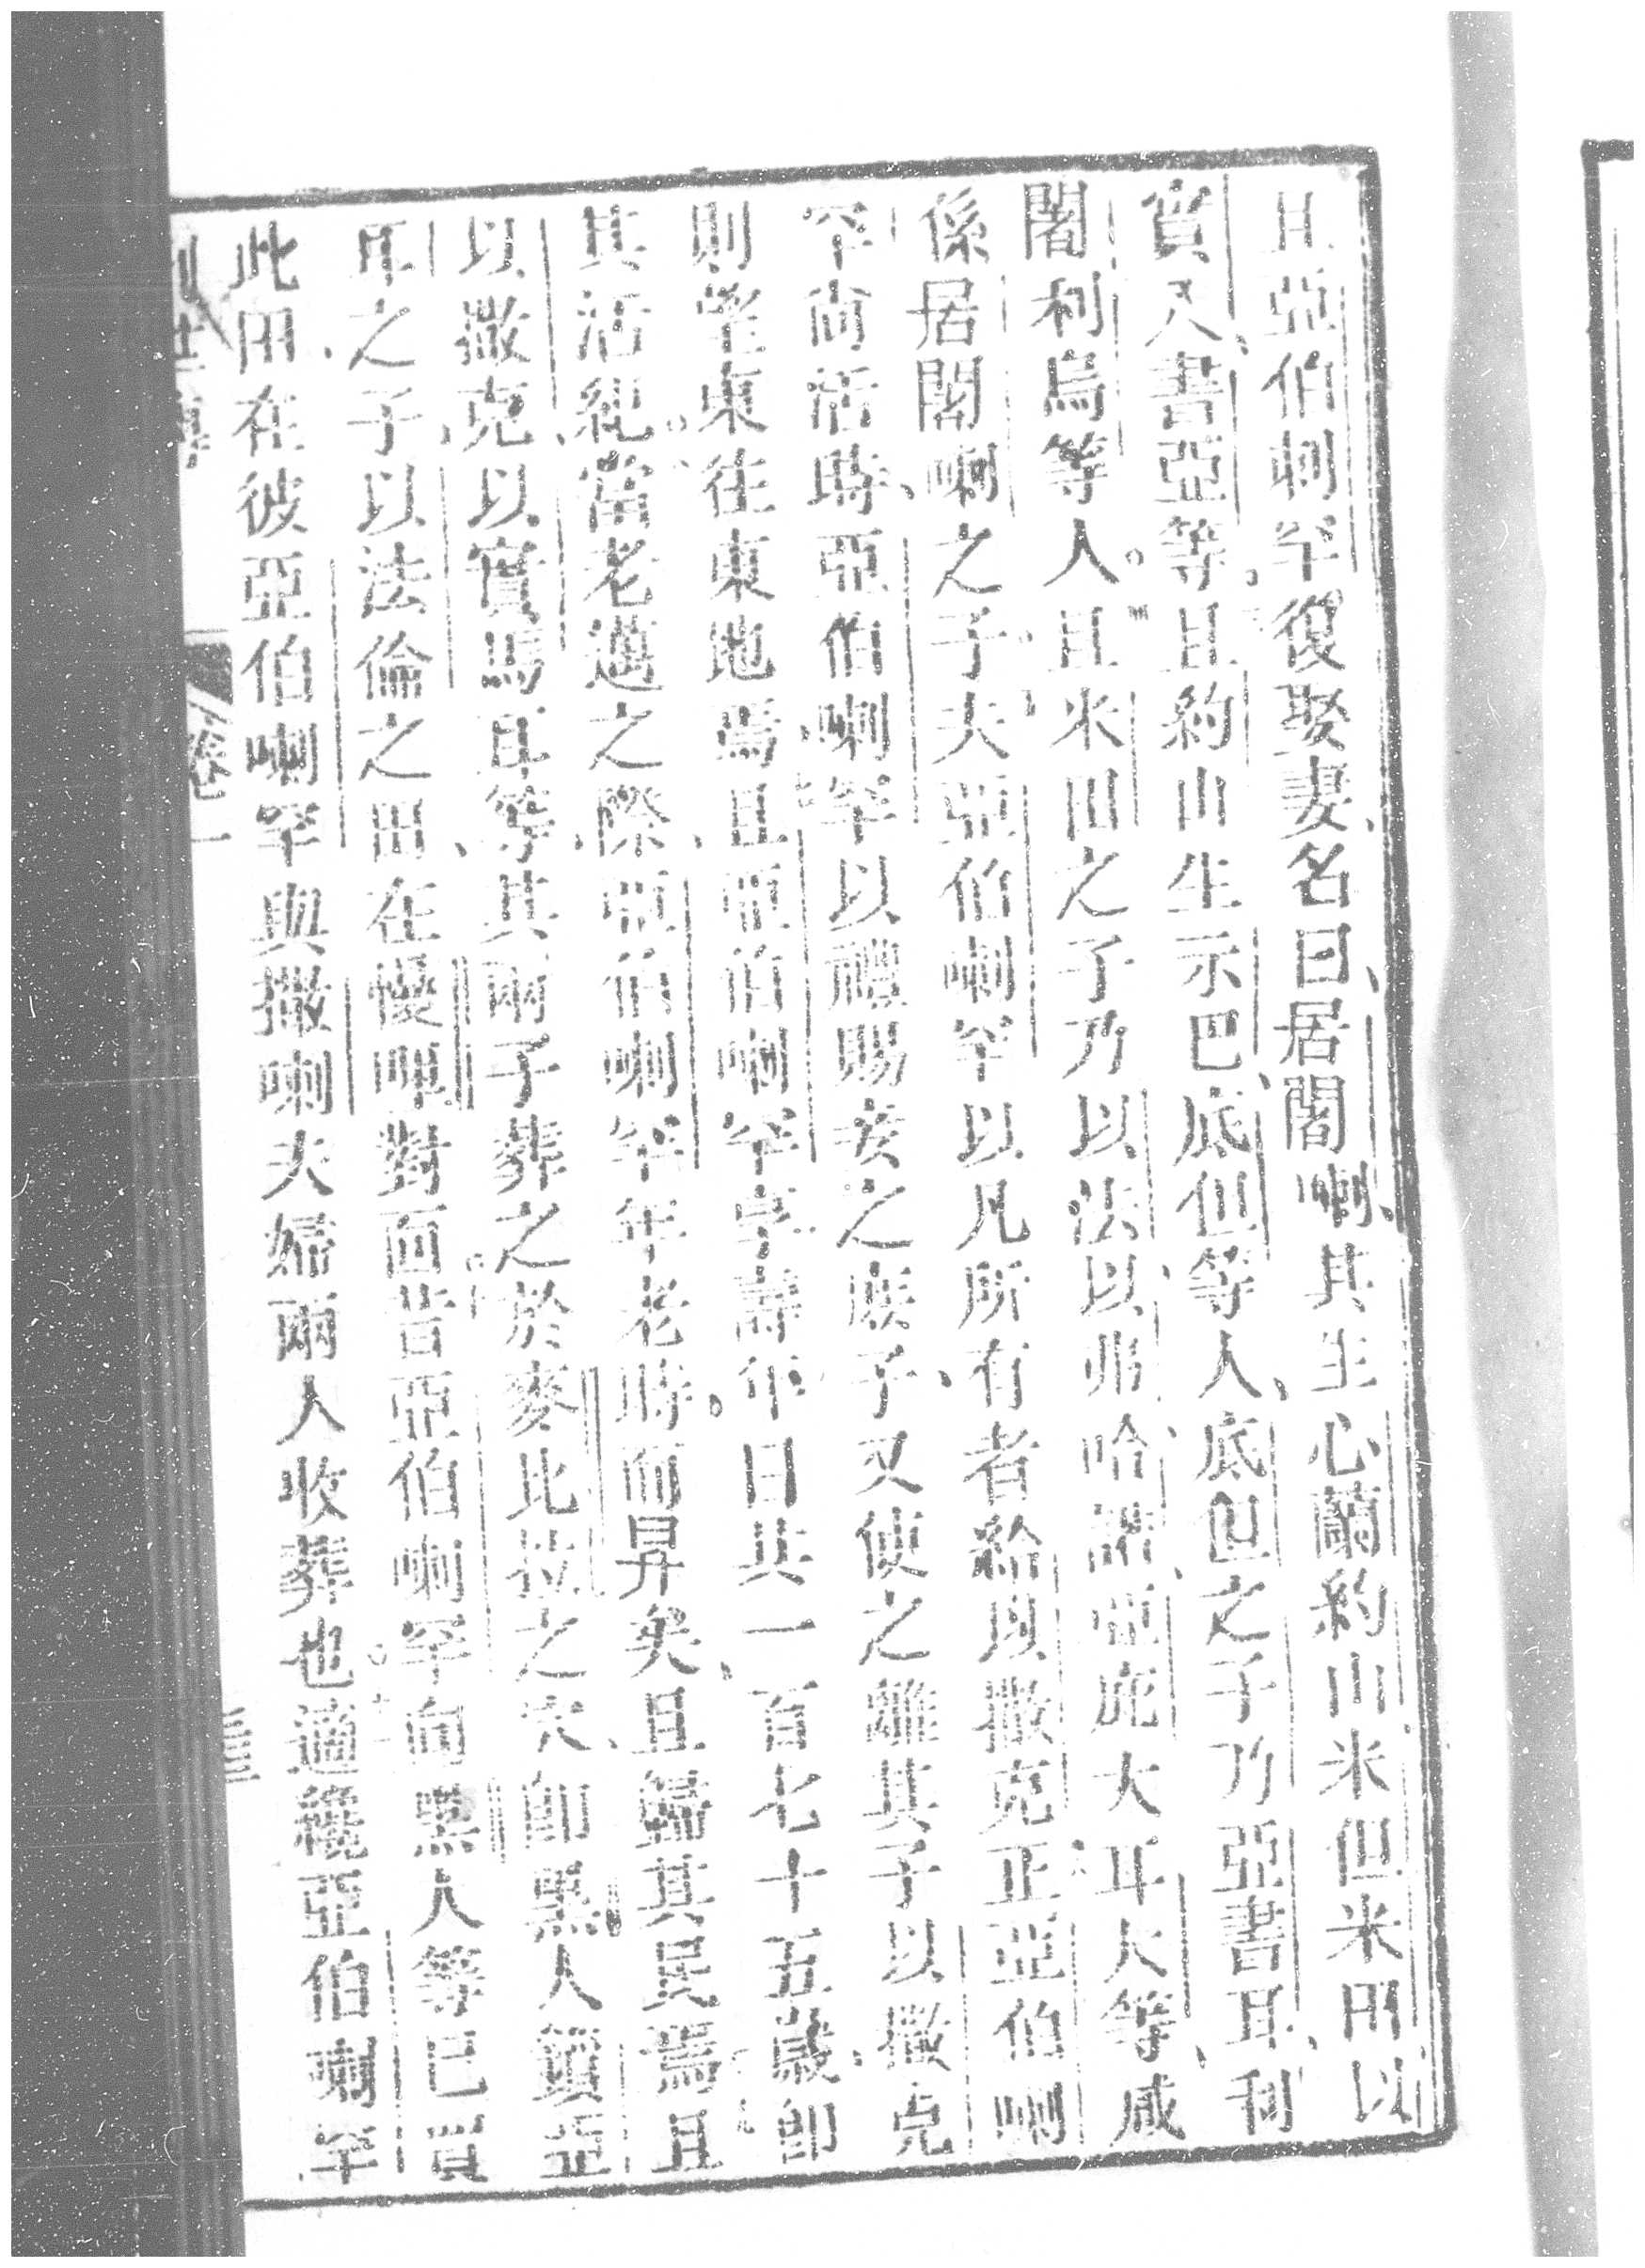 且亞伯喇罕復娶妻名曰居閣喇其生心蘭約山米但米田以
實人書亞等且約山生示巴底但等人底但之子乃亞書耳利
閣利烏等人且米田之子乃以法以弗哈諾亞庇大耳大等咸
係居閣喇之子夫亞伯喇罕以凡所有者給以撒克正亞伯喇
罕尚活時亞伯喇罕以禮賜妾之庶子又使之離其子以撒克
則望東往東地焉且亞伯喇罕享壽年日共一百七十五歲卽
其活紀當老邁之際亞伯喇罕年老時而昇矣且歸其民焉且
以撒克以實馬耳等其兩子葬之於麥比拉之穴卽黑人鎖亞
耳之子以法倫之田在慢哩對面昔亞伯喇罕向黑人等已買
此田在彼亞伯喇罕與撒喇夫婦兩人收葬也適後亞伯喇罕